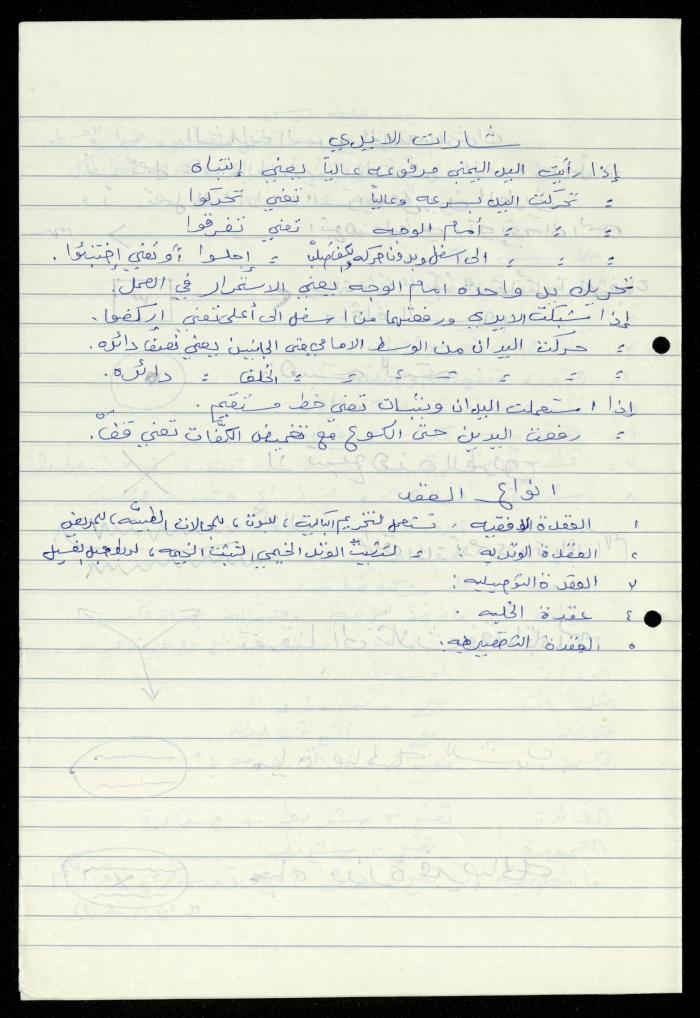 شارات الايدي
إذا رأيت اليد اليمنى مرفوعه عالياً يعني إنتباه
= تحركت اليد بسرعه وعالياً تعني تحركوا
= = = أمام الوجه تعني تفرقوا
= = = الى اسفل وبدون حركه = إجلسوا أو تعني إختبئوا .
تحريك يد واحدة امام الوجه يعني الاستمرار في العمل
إذا شبكت الايدي ورفعتهما من اسفل الى أعلى تعني اركضوا .
= حركت اليدان من الوسط الامامي حتى الجانبين يعني نصف دائره .
= = = = = = الخلف = دائره .
إذا استعملت اليدان وبثبات تعني خط مستقيم .
= رفعت اليدين حتى الكوع مع تغميض الكفّات تعني قف .
انواع العقد
١ العقدة الافقيه . تستعمل
٢ العقدة الوتديه : = لتثبيت الوتد الخيمي ، لتثبيت الخيمه ،
٣ العقدة التوصيليه :
٤ عقدة الخليه .
٥ العقدة التقصيريه .